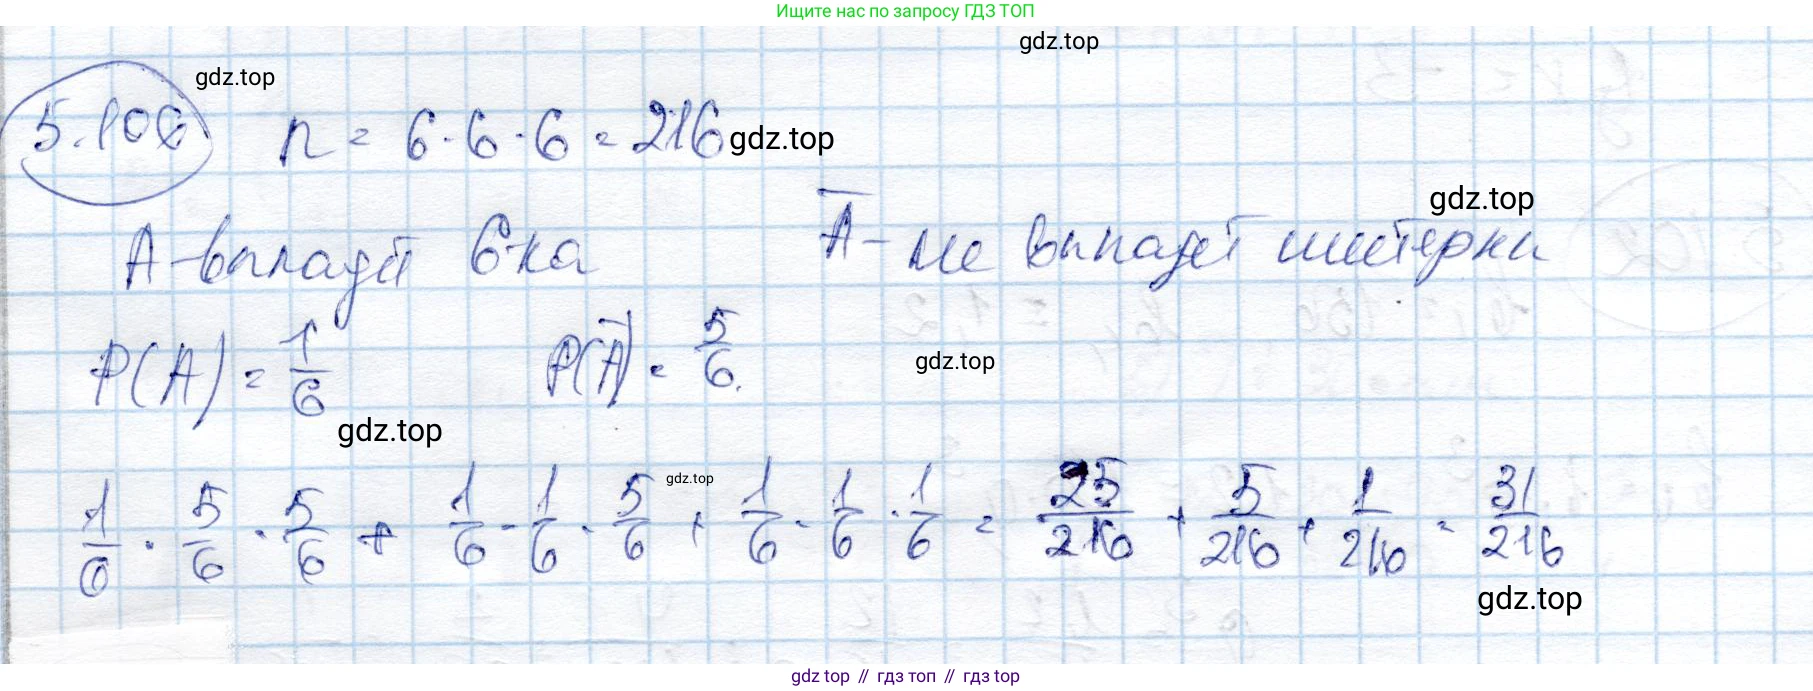 Ищите нас по запросу ГДЗ ТОП
gdz.top
gdz.top
5.106 n = 6·6·6 = 216 gdz.top
gdz.top
A - выпадет 6-ка Ā - не выпадет шестерки
P(A) = 1/6 P(Ā) = 5/6.
gdz.top
gdz.top
gdz.top
1/6 · 5/6 · 5/6 + 1/6 · 1/6 · 5/6 + 1/6 · 1/6 · 1/6 = 25/216 + 5/216 + 1/216 = 31/216
gdz.top
gdz top // гдз топ // гдз top